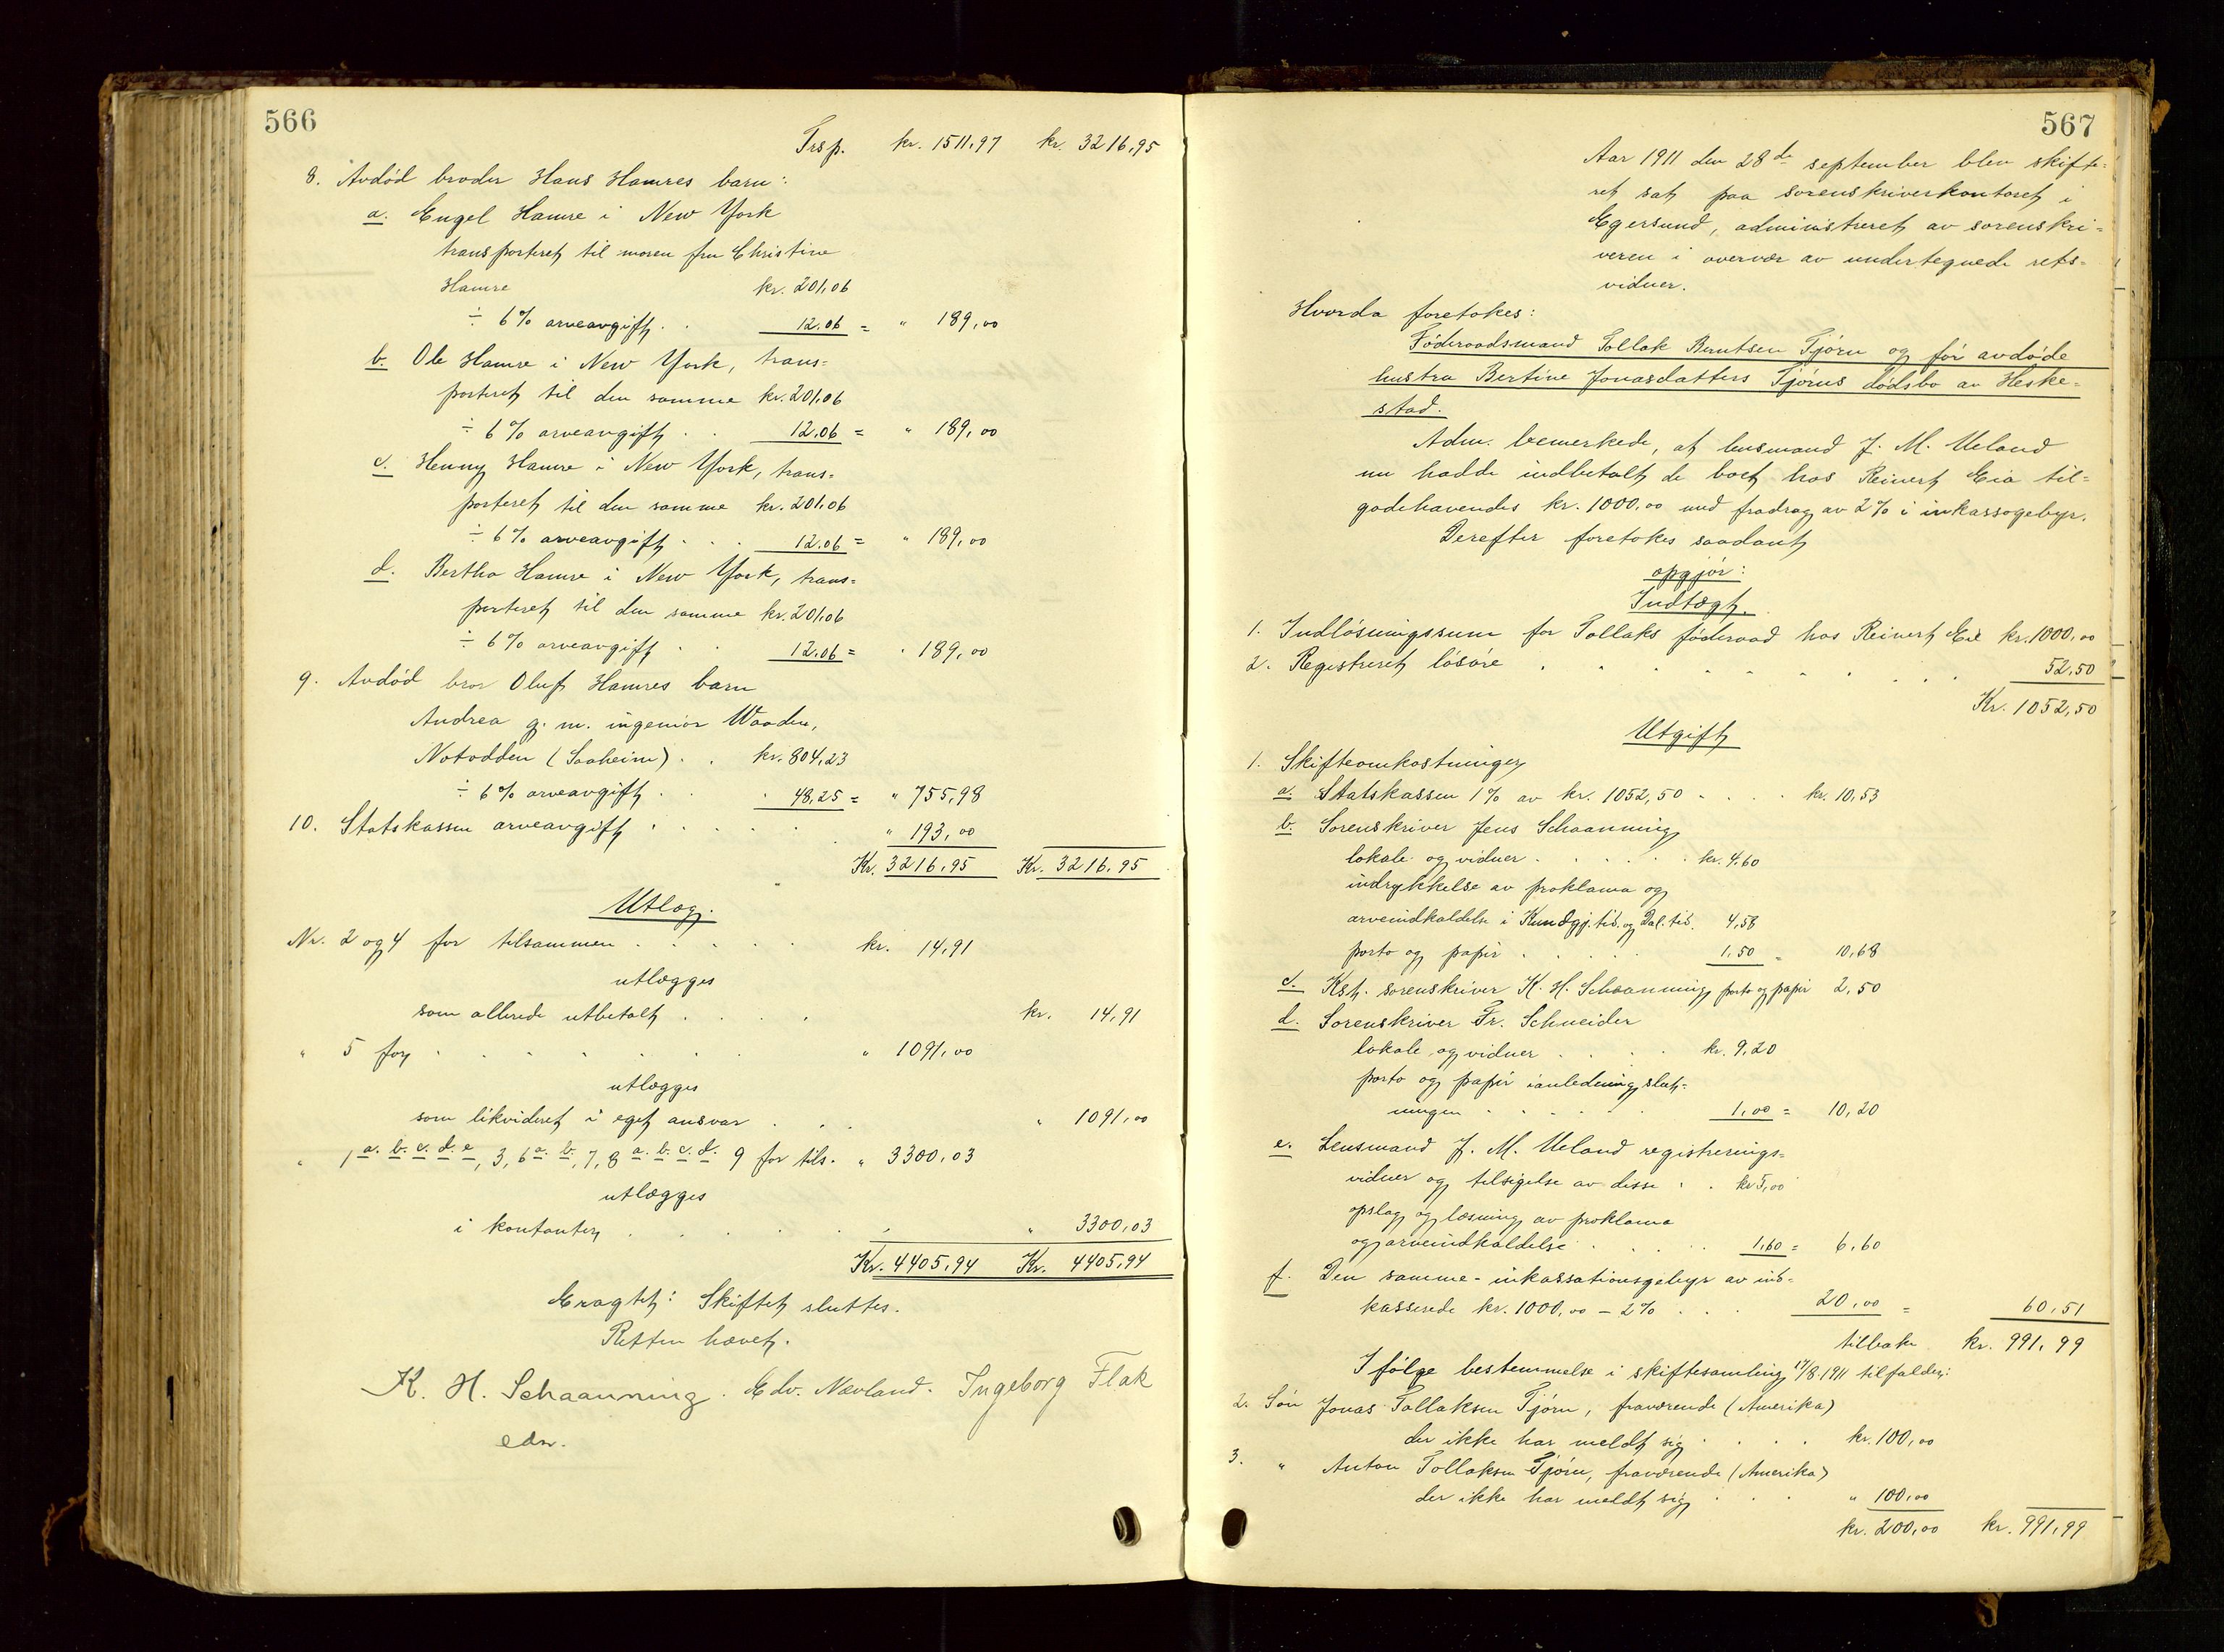 566
Trsp. kr. 1511,97 kr. 3216,95
8. Avdød broder Hans Hamres barn:
a. Engel Hamre i New York
transporteret til moren fru Christine
Hamre kr. 201,06
÷ 6% arveavgift . . 12,06 = " 189,00
b. Ole Hamre i New York, trans=
porteret til den samme kr. 201,06
÷ 6% arveavgift . . 12,06 = " 189,00
c. Henny Hamre i New York, trans=
porteret til den samme kr. 201,06
÷ 6% arveavgift . . . 12.06 = " 189,00
d. Bertha Hamre i New York, trans=
porteret til den samme kr. 201,06
÷ 6% arveavgift . . 12.06 = " 189,00
9. Avdød bror Oluf Hamres barn
Andrea g. m. ingeniør Waaden,
Notodden (Saaheim) . . kr. 804,23
÷ 6% arveavgift . . 48,25 = " 755,98
10. Statskassen arveavgift . . . . . " 193,00
Kr. 3216,95 Kr. 3216,95
Utlæg.
Nr. 2 og 4 for tilsammen . . . . . kr. 14,91
utlægges
som allerede utbetalt . . . . kr. 14,91
" 5 for . . . . . . . " 1091,00
utlægges
som likvideret i eget ansvar . . . " 1091,00
" 1 a. b. c. d. e, 3, 6 a. b, 7, 8 a. b. c. d. 9 for tils. " 3300,03
utlægges
i kontanter . . . . . " 3300,03
Kr. 4405,94 Kr. 4405,94
Eragtet: Skiftet sluttes.
Retten hævet.
K. H. Schaanning. Edv. Nævland. Ingeborg Flak
edsv.
567
Aar 1911 den 28de september blev skifte=
ret sat paa sorenskriverkontoret i
Egersund, administreret av sorenskri=
veren i overvær av undertegnede rets=
vidner.
Hvorda foretokes:
Føderaadsmand Tollak Berntsen Tjørn og før avdøde
hustru Bertine Jonasdatters Tjørns dødsbo av Heske=
stad.
Adm. bemerkede, at lensmand J. M. Ueland
nu hadde indbetalt de boet hos Reinert Eia til=
godehavendes kr. 1000,00 med fradrag av 2% i inkassogebyr.
Derefter foretokes saadant
opgjør:
Indtægt.
1. Indløsningssum for Tollaks føderaad hos Reinert Eie kr. 1000,00
2. Registreret løsøre . . . . . . . . . 52,50
Kr. 1052,50
Utgift
1. Skifteomkostninger
a. Statskassen 1% av kr. 1052,50 . . . . kr. 10,53
b. Sorenskriver Jens Schaanning
lokale og vidner . . . . . . kr. 4,60
indrykkelse av proklama og
arveindkaldelse i Kundgj. tid. og Dal. tid. 4,58
porto og papir . . . . . 1,50 = 10,68
c. Kst. sorenskriver K. H. Schaanning porto og papir 2,50
d. Sorenskriver Fr. Schneider
lokale og vidner . . . . kr. 9,20
porto og papir i anledning slut=
ningen . . . . . 1,00 = 10,20
e. Lensmand J. M. Ueland registrerings=
vidner og tilsigelse av disse . . kr 5,00
opslag og læsning av proklama
og arveindkaldelse . . . . . 1,60 = 6,60
f. Den samme - inkassationsgebyr av ind=
kasserede kr. 1000,00 - 2% . . . 20,00 = 60,51
tilbake kr. 991,99
Ifølge bestemmelse i skiftesamling 17/8 1911 tilfalder:
2. Søn Jonas Tollaksen Tjørn, fraværende (Amerika)
der ikke har meldt sig . . . . kr. 100,00
3. " Anton Tollaksen Tjørn, fraværende (Amerika)
der ikke har meldt sig . . . " 100,00
kr. 200,00 kr. 991,99